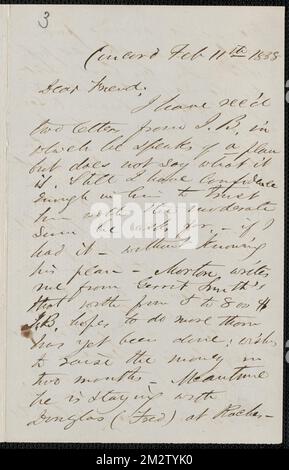 3
Concord Feb 11th 1858
Dear Friend.
I have rec'd
two letters from J.B. in
which he speaks of a plan
but does not say what it
is. Still I have confidence
enough in him to trust
him with the moderate
sum he asks for - if I
had it - without knowing
his plan - Morton writes
me from Gerrit Smith's
that
J.B. hopes to do more than
has yet been done; wishes
to raise the money in
two months - Meantime
he is staying with
Douglas (Fred) at Roches-
alamy
Image ID: 2M2TYK0
www.alamy.com